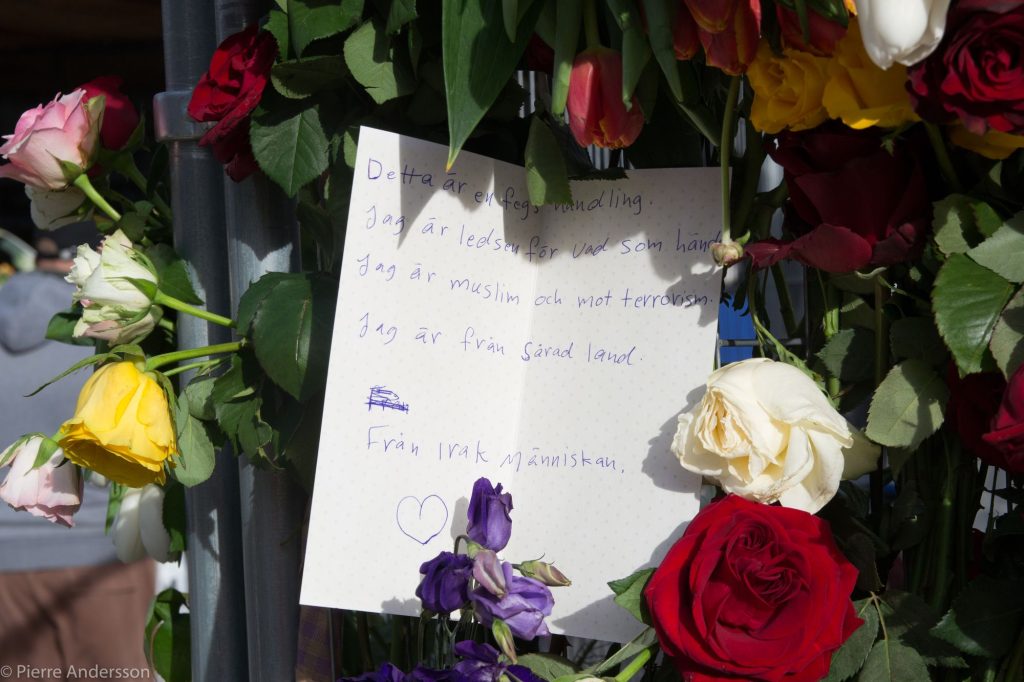 Detta är en fegs handling.
Jag är ledsen för vad som händ
Jag är muslim och mot terrorism.
Jag är från Sårad land.
Från Irak Människan.
© Pierre Andersson